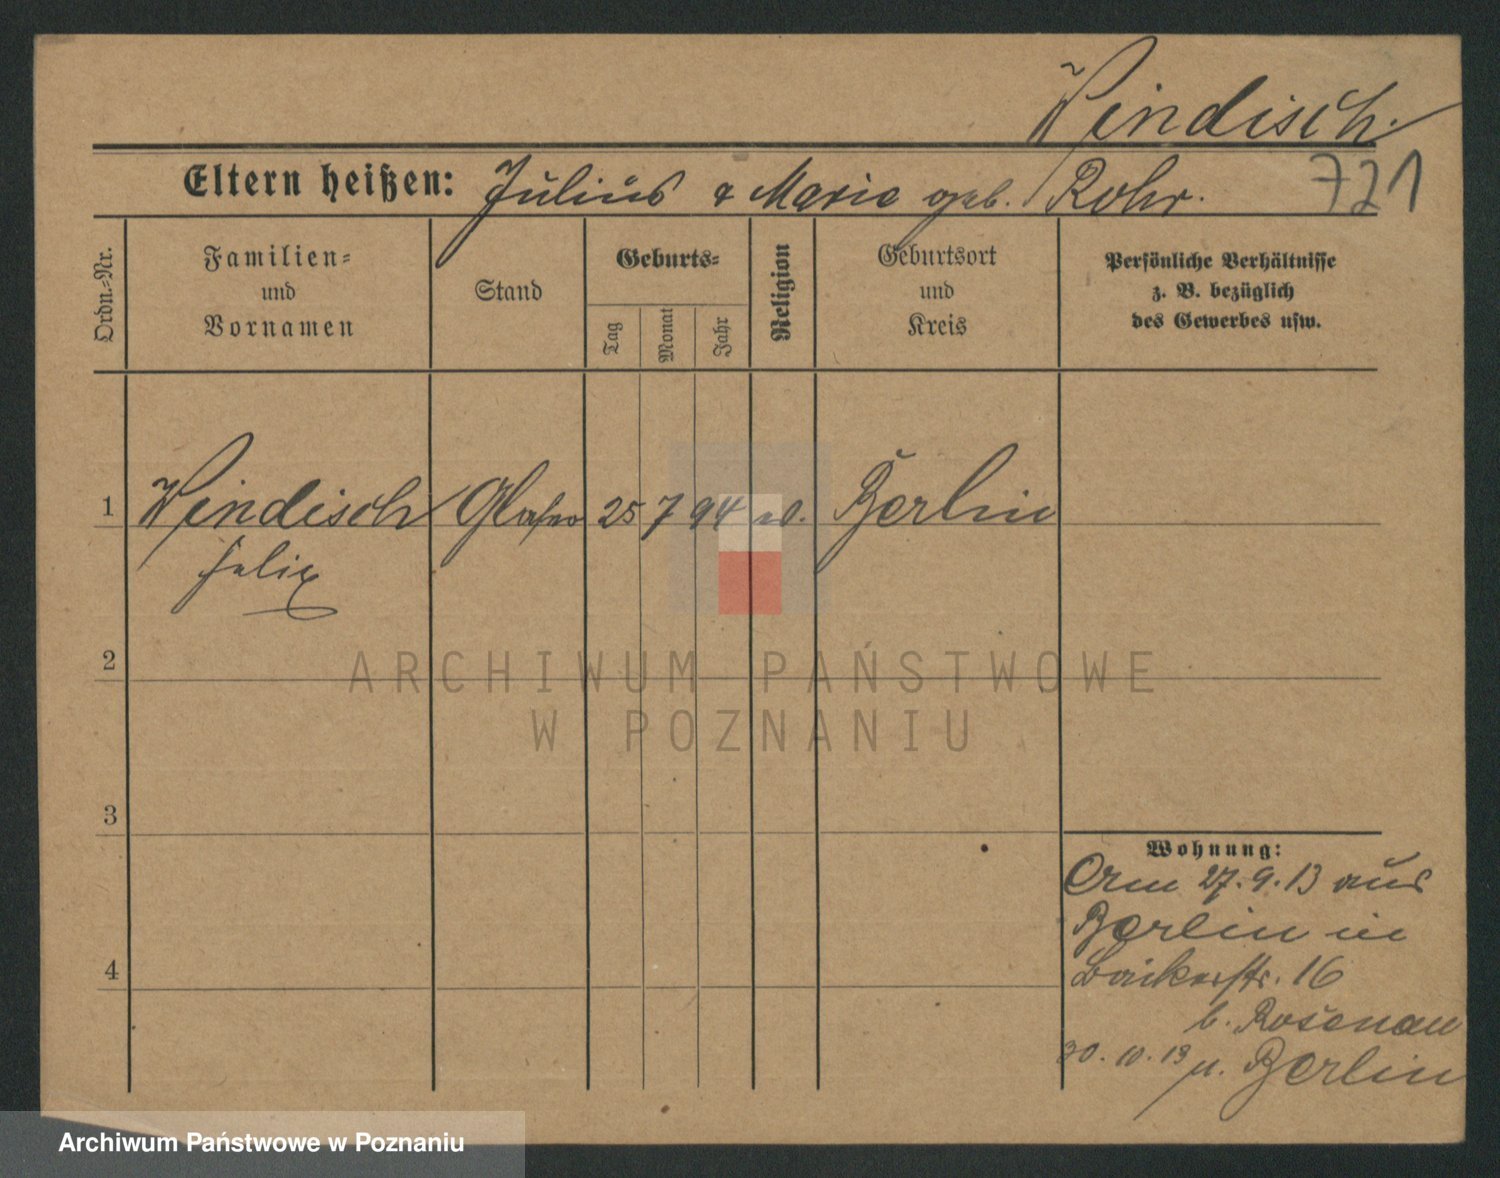 Windisch.
Eltern heißen: Julius & Marie geb. Rohr. 721
Ordn.-Nr.
Familien-
und
Vornamen
Stand
Geburts-
Tag
Monat
Jahr
Religion
Geburtsort
und
Kreis
Persönliche Verhältnisse
z. B. bezüglich
des Gewerbes usw.
1 Windisch Glaser 25 7 94 Berlin
Felix
2
3
4
ARCHIWUM PAŃSTWOWE
W POZNANIU
Wohnung:
27.9.13 aus
Berlin in
Bäckerstr. 16
b. Rosenau
30.10.13 n. Berlin
Archiwum Państwowe w Poznaniu